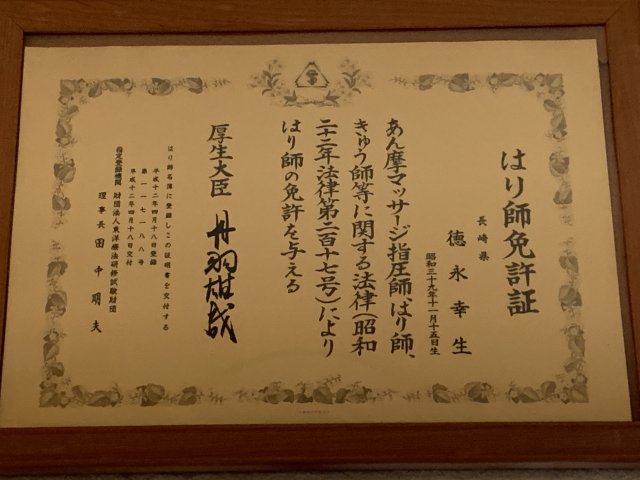 はり師免許証
長崎県
徳永幸生
昭和三十九年十一月十五日生
あん摩マッサージ指圧師、はり師、
きゅう師等に関する法律(昭和
二十二年法律第二百十七号)により
はり師の免許を与える
厚生大臣 丹羽雄哉
はり師名簿に登録しこの証明書を交付する
平成十二年四月十八日登録
第一一七一八八号
平成十二年四月十八日交付
指定登録機関 財団法人東洋療法研修試験財団
理事長 田中明夫